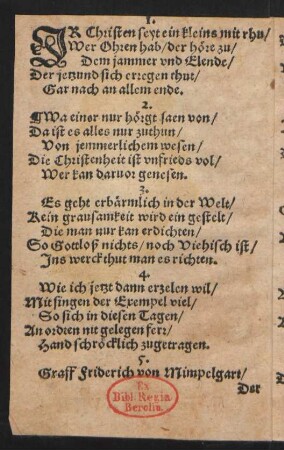 1.
IR Christen seyt ein kleins mit rhu/
Wer Ohren hab/der höre zu/
Dem jammer vnd Elende/
Der jetzund sich erregen thut/
Gar nach an allem ende.
2.
Wa einer nur hörgt sagen von/
Da ist es alles nur zuthun/
Von jemmerlichem wesen/
Die Christenheit ist vnfrieds vol/
Wer kan daruor genesen.
3.
Es geht erbärmlich in der Welt/
Kein grausamkeit wird ein gestelt/
Die man nur kan erdichten/
So Gottloß nichts/noch Viehisch ist/
Ins werck thut man es richten.
4.
Wie ich jetzt dann erzelen wil/
Mit singen der Exempel viel/
So sich in diesen Tagen/
An ordten nit gelegen ferr/
Hand schröcklich zugetragen.
5.
Graff Friderich von Mimpelgart/
Der
Ex
Bibl. Regia
Berolin.